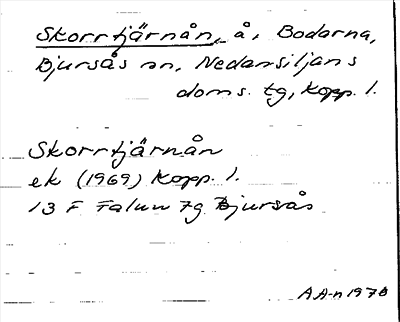 Skorrtjärnån, å, Bodarna,
Bjursås sn, Nedansiljans
doms. tg, Kopp. l.
Skorrtjärnån
ek (1969) Kopp. l.
13 F Falun 7g Bjursås
AA-n 1970